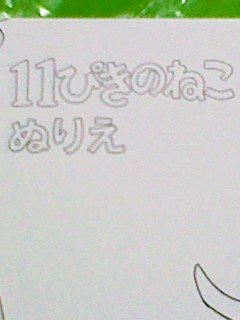 11ぴきのねこ
ぬりえ